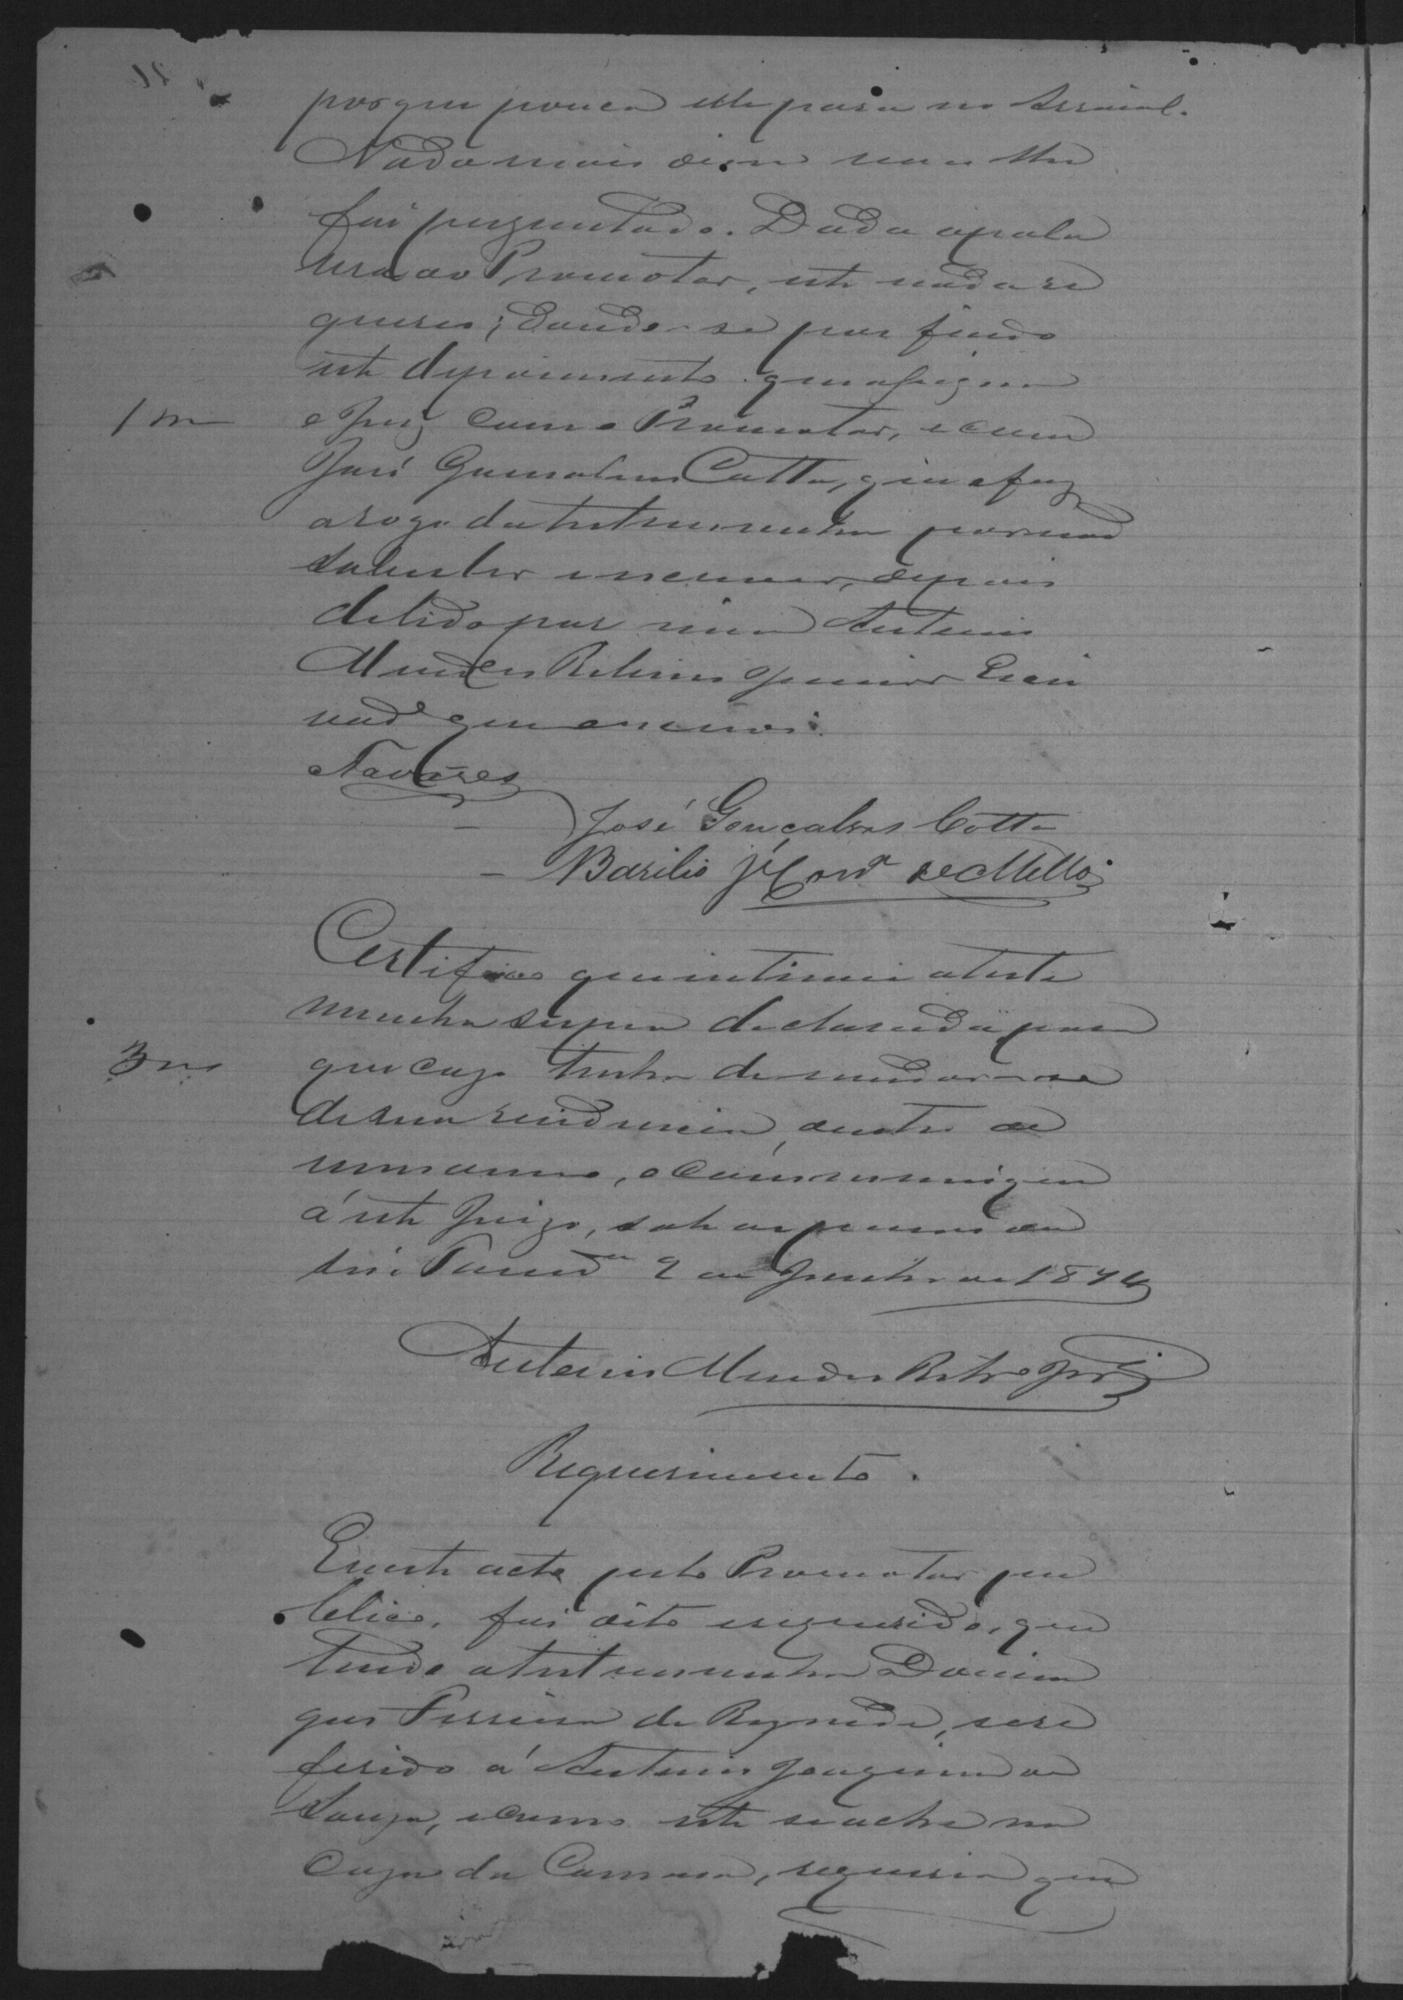 porque pouco elle para no Arraial.
Nada mais disse nem lhe
foi perguntado. Dada a pala
vra ao Promotor, este nada re
quereo; dando-se por findo
este depoimento que assigna
1 m o Juiz com o Promotor, e com
José Gonsalves Cotta, que o faz
a rogo da testemunha por não
saber ler e escrever, depois
de lido por mim Antonio
Mendes Ribeiro Junior Escri
vão que o escrevi.
Tavares
José Gonçalves Cotta
Basilio Je Cord.a de Mello
Certifico que intimei a teste
munha supra declarada para
3 m que caso tenha de mudar-se
de sua residencia, dentro de
um anno, o communique
á este Juizo, sob as penas da
lei. 2 de Junho de
Antonio Mendes Ribro Jor
Requerimento.
E neste acto pelo Promotor pu
blico, foi dito e requerido, que
tendo a testemunha Domin
gos Ferreira de Resende, se re
ferido á Antonio Joaquim de
Souza, e como este se acha na
Caza da Camara, requeria que